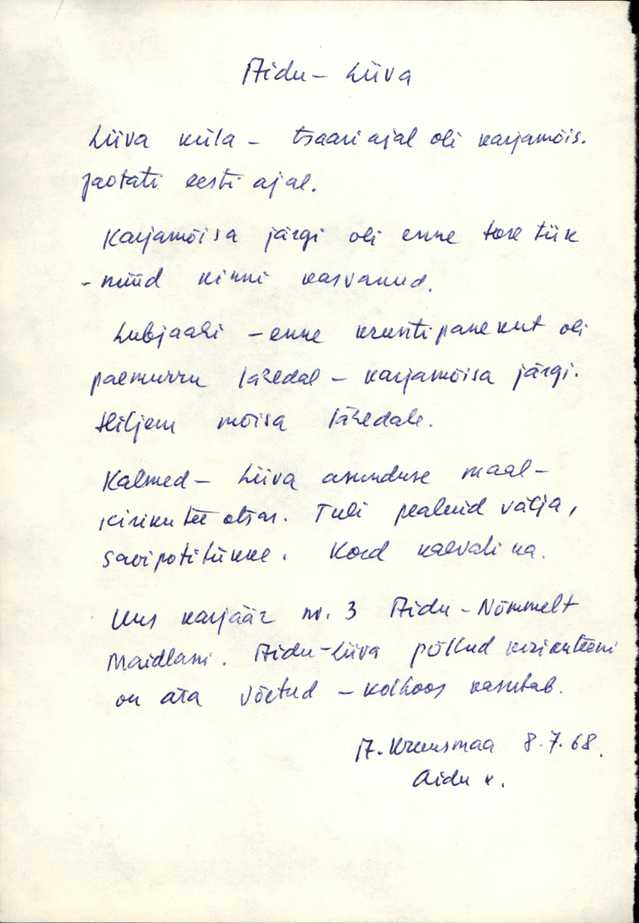 Aidu - Liiva
Liiva küla - tsaari ajal oli karjamõis.
Jaotati eesti ajal.
Karjamõisa järgi oli enne tore tiik
- nüüd kinni kasvanud.
Lubjaahi - enne kruntipanekut oli
paemurru lähedal - karjamõisa järgi.
Hiljem mõisa lähedale.
Kalmed - Liiva asunduse maal -
kirikutee otsas. Tuli pealuid välja,
savipotitükke. Kord kaevati ka.
Uus karjäär nr. 3 Aidu - Nõmmelt
Maidlani. Aidu-Liiva põllud kirikuteeni
on ära võetud - kolhoos kasutab.
A. Kreusmaa 8.7.68.
Aidu k.